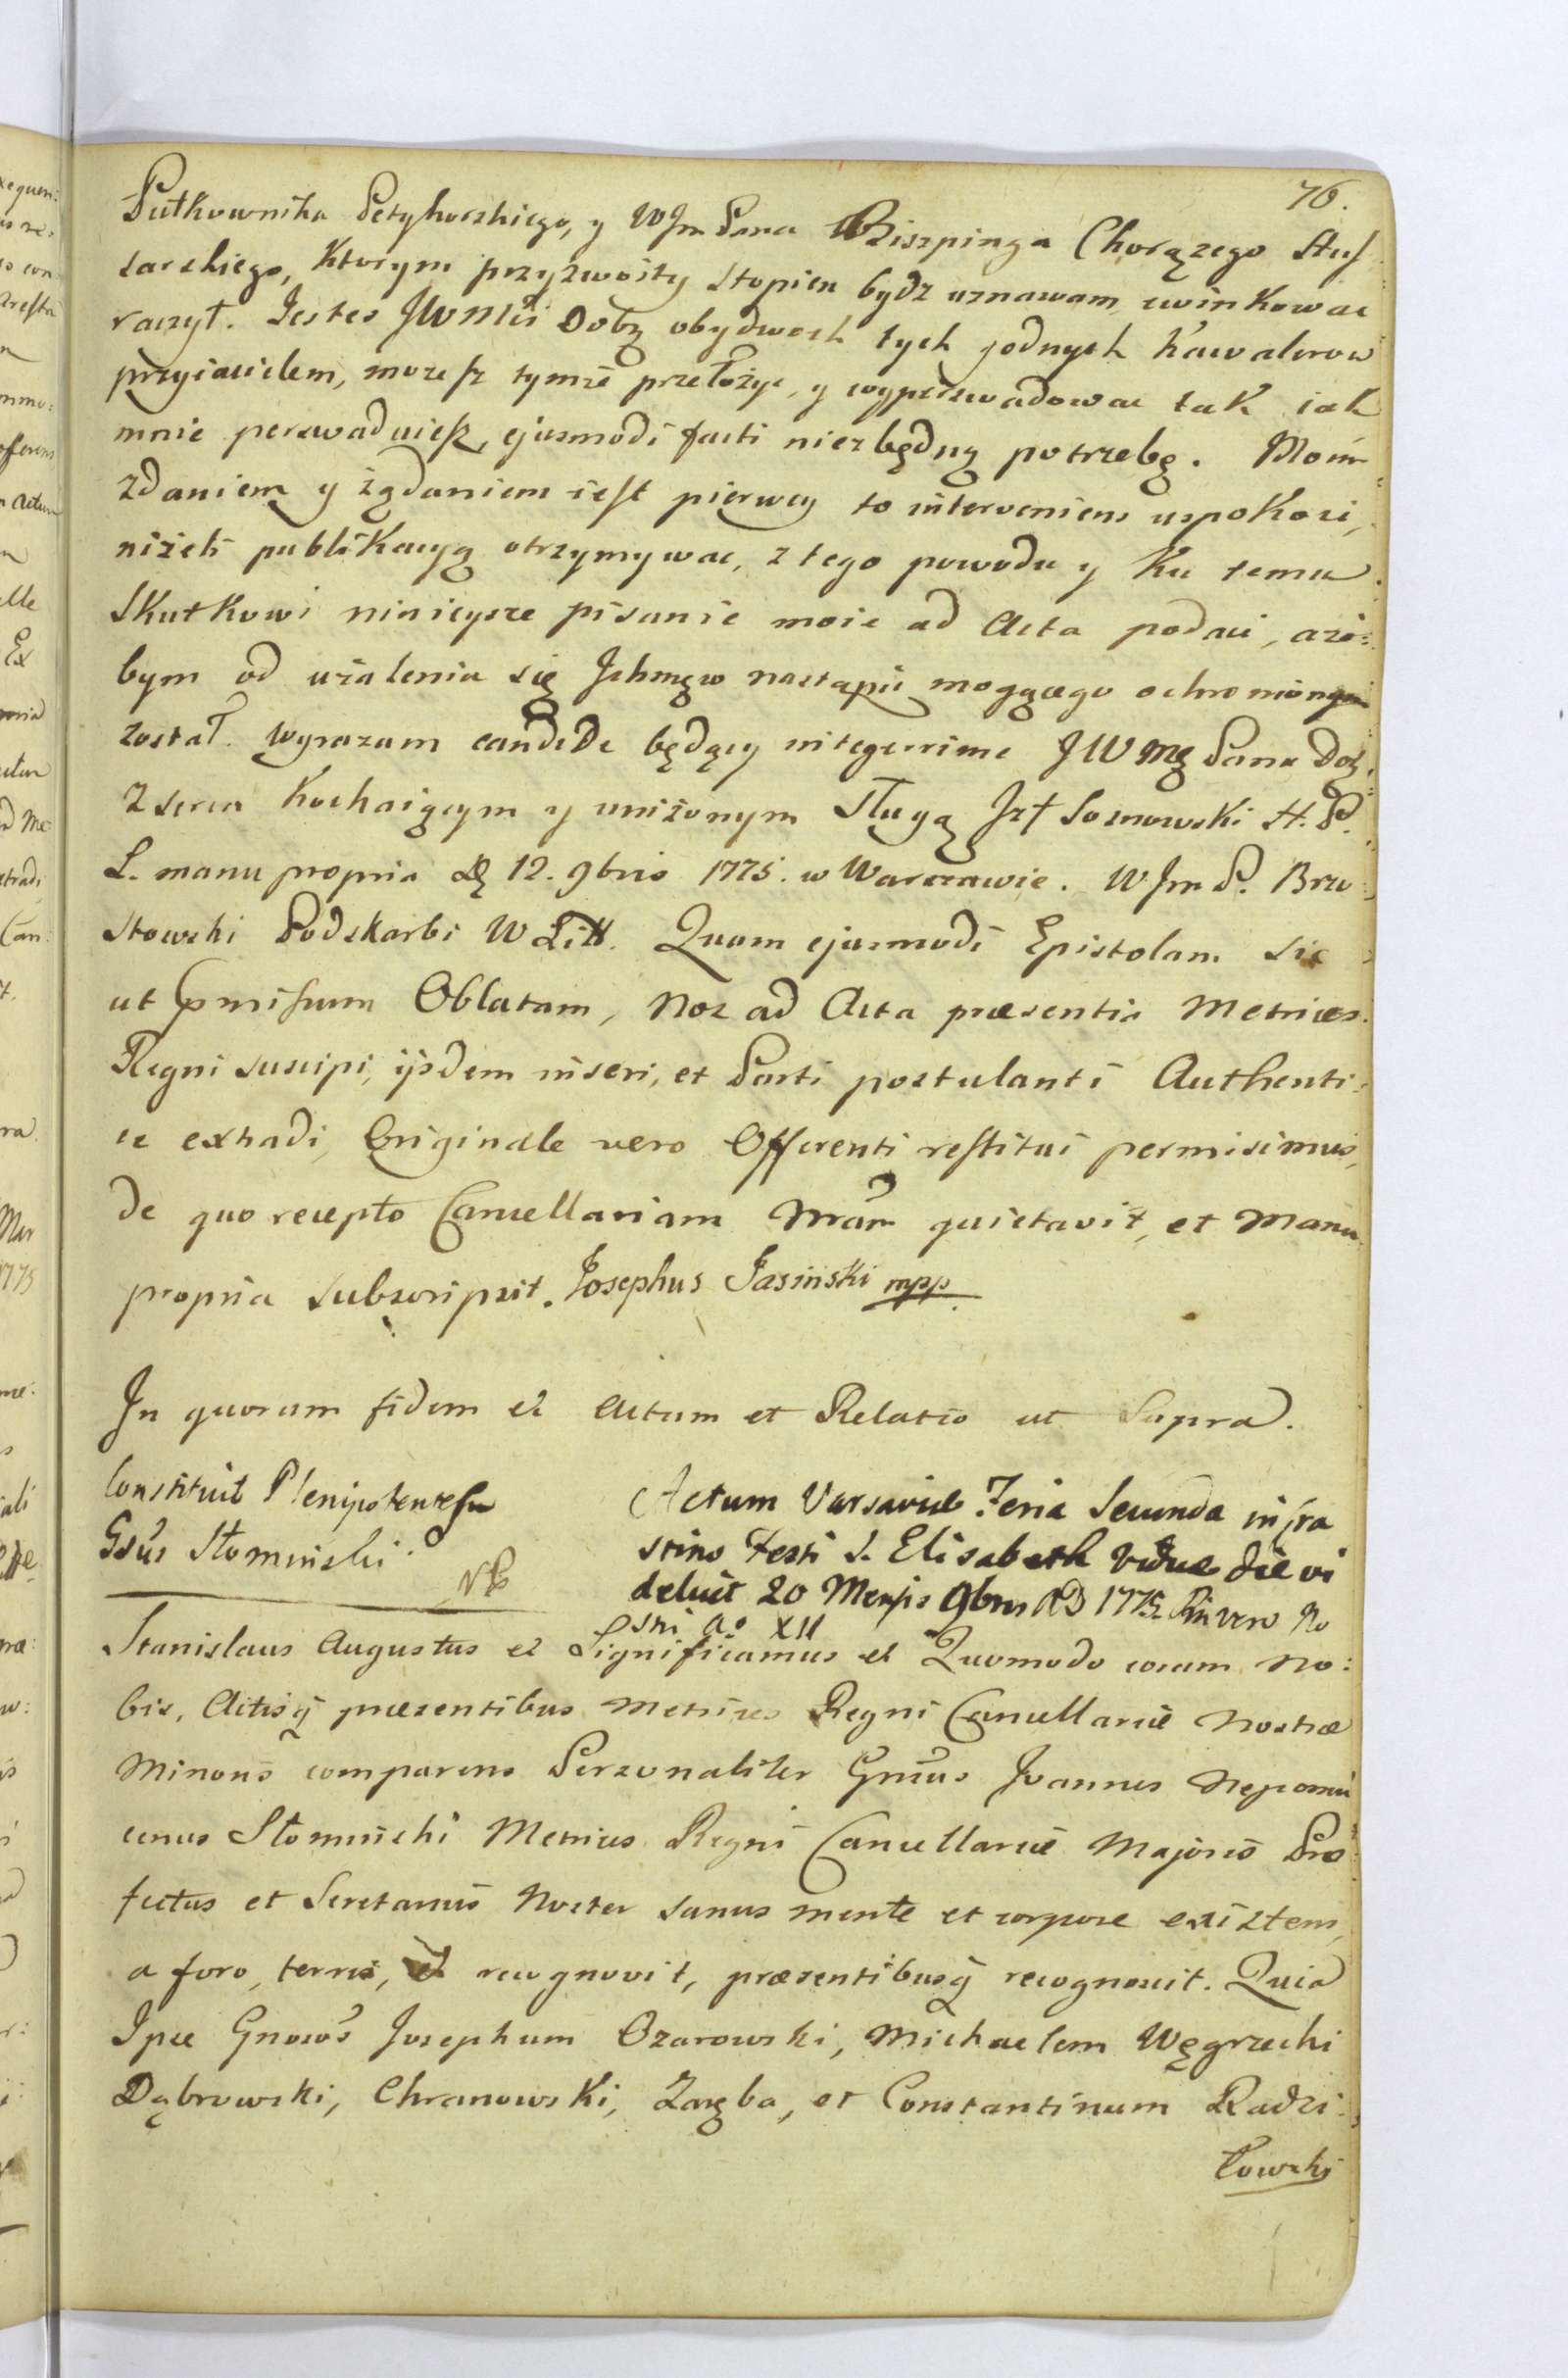 76.
Pułkownika Petyhorskiego, y WJm Pana Biszpinga Chorązego Hus=
sarskiego, ktorym przyzwoity stopien bydz uznawam, winkowac
raczył. Jestes JWMći Dobz obydwoch tych godnych kawalerow
przyiacielem, możesz tymże przełożyc, y wyperswadowac tak iak
mnie perswaduiesz, ejusmodi facti niezbędną potrzebę. Moim
zdaniem y żądaniem iest pierwey to interveniens uspokoić,
niżeli publikacyą otrzymywac, z tego powodu y ku temu
skutkowi ninieysze pisanie moie ad Acta podaię, aże=
bym od użalenia się Ichmciow nastąpić mogącego ochroniony
został. Wyrazam candide będący integerrime JWMę Pana Dobz
z serca kochaiącym y uniżonym sługą Jzf Sosnowski H. P.
L. manu propria D 12. 9bris 1775. w Warszawie. WJm P. Brzo=
stowski Podskarbi W Litt. Quam ejusmodi Epistolam sic
ut præmissum Oblatam, Nos ad Acta præsentia Metrices
Regni suscipi, ijsdem inseri, et Parti postulanti Authenti=
ce extradi, Originale vero Offerenti restitui permisimus,
de quo recepto Cancellariam Nram quietavit, et Manu
propria subscripsit. Josephus Jasiński mpp
In quorum fidem et Actum et Relatio ut Supra.
Constituit Plenipotentes
Gsus Słomiński.
Actum Varsaviæ Feria Secunda in
crastino Festi S. Elisabeth Viduæ die vi
delicet 20 Mensis 9bris AD 1775. Rni vero No
stri Aº XII
Stanislaus Augustus et Significamus et Quomodo coram No=
bis, Actisq præsentibus Metrices Regni Cancellariæ Nostræ
Minoris comparens Personaliter Gnsus Joannes Nepomu
cenus Słomiński Metrices Regni Cancellariæ Majoris Præ
fectus et Secretarius Noster sanus mente et corpore existens,
a foro, terris, et recognovit, præsentibusq recognoscit. Quia
Ipse Gnosos Josephum Ozarowski, Michaelem Węgrzecki
Dąbrowski, Chranowski, Zaręba, et Constantinum Radzi=
łowski